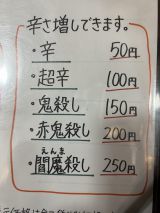 辛さ増しできます。
・辛 50円
・超辛 100円
・鬼殺し 150円
・赤鬼殺し 200円
えんま
・閻魔殺し 250円